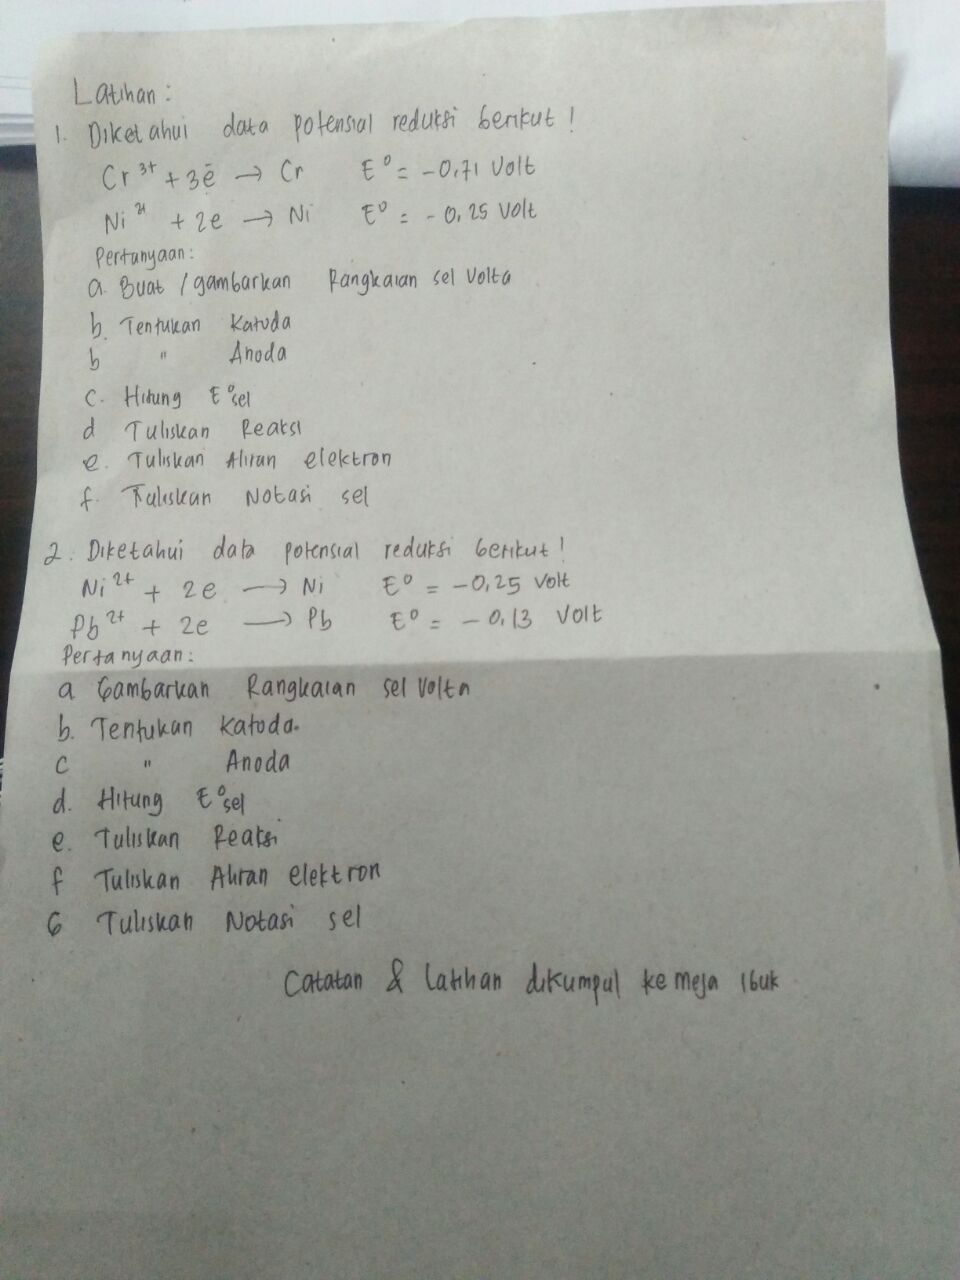 Latihan :
1. Diketahui data potensial reduksi berikut !
Cr ³⁺ + 3ē → Cr E⁰ = -0,71 Volt
Ni ²⁺ + 2e → Ni E⁰ = - 0,25 Volt
Pertanyaan :
a. Buat / gambarkan Rangkaian sel Volta
b. Tentukan Katoda
b " Anoda
c. Hitung E⁰sel
d Tuliskan Reaksi
e. Tuliskan Aliran elektron
f. Tuliskan Notasi sel
2. Diketahui data potensial reduksi berikut !
Ni ²⁺ + 2e → Ni E⁰ = -0,25 Volt
Pb ²⁺ + 2e → Pb E⁰ = - 0,13 Volt
Pertanyaan :
a Gambarkan Rangkaian sel Volta
b. Tentukan Katoda.
c " Anoda
d. Hitung E⁰sel
e. Tuliskan Reaksi
f Tuliskan Aliran elektron
G Tuliskan Notasi sel
Catatan & Latihan dikumpul ke meja ibuk